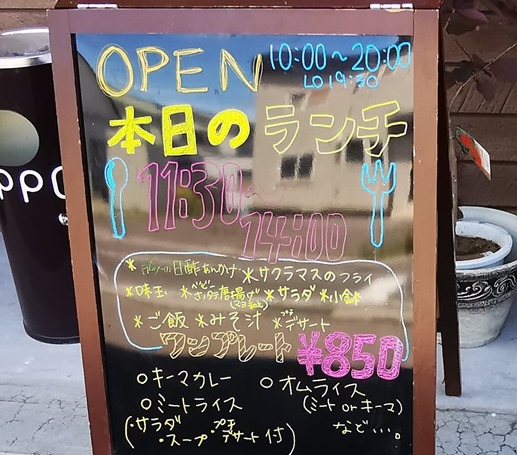 OPEN 10:00~20:00
LO 19:30
本日のランチ
11:30~
14:00
*の甘酢あんかけ *サクラマスのフライ
*味玉 *ベビーホタテ唐揚げ *サラダ *小鉢
*ご飯 *みそ汁 *プチデザート
ワンプレート ¥850
○キーマカレー ○オムライス
○ミートライス (ミートorキーマ)
(・サラダ ・プチデザート付) など…。
・スープ
PPO